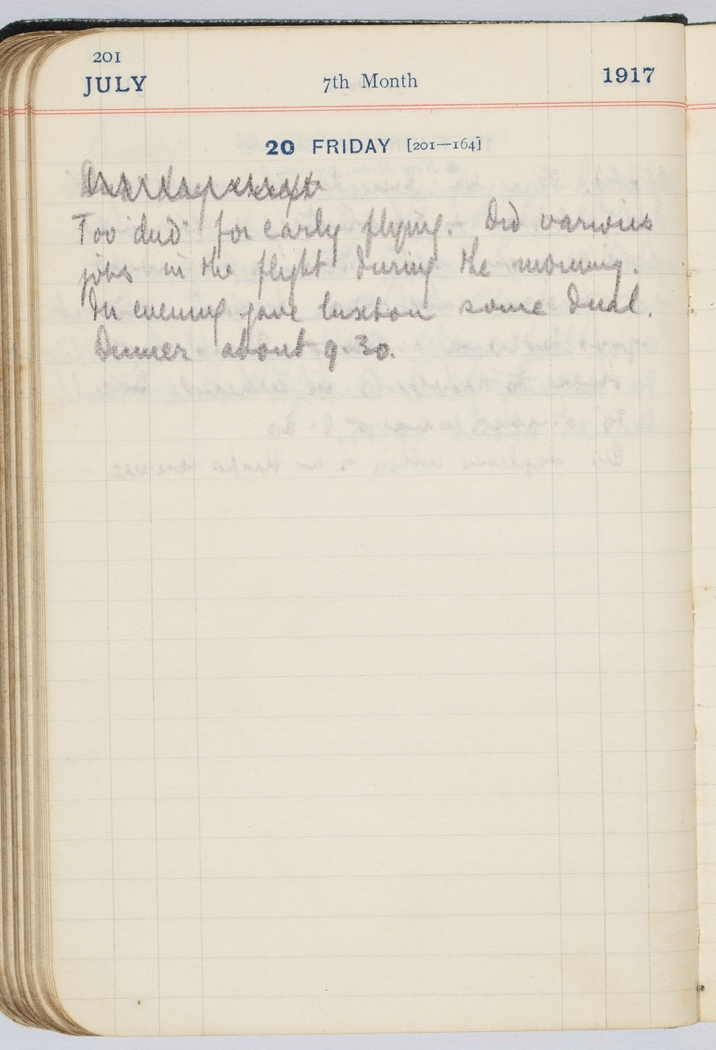 201
JULY 7th Month 1917
20 FRIDAY [201—164]
Too "dud" for early flying. Did various
jobs in the flight during the morning.
In evening gave Luxton some Dual.
Dinner about 9.30.